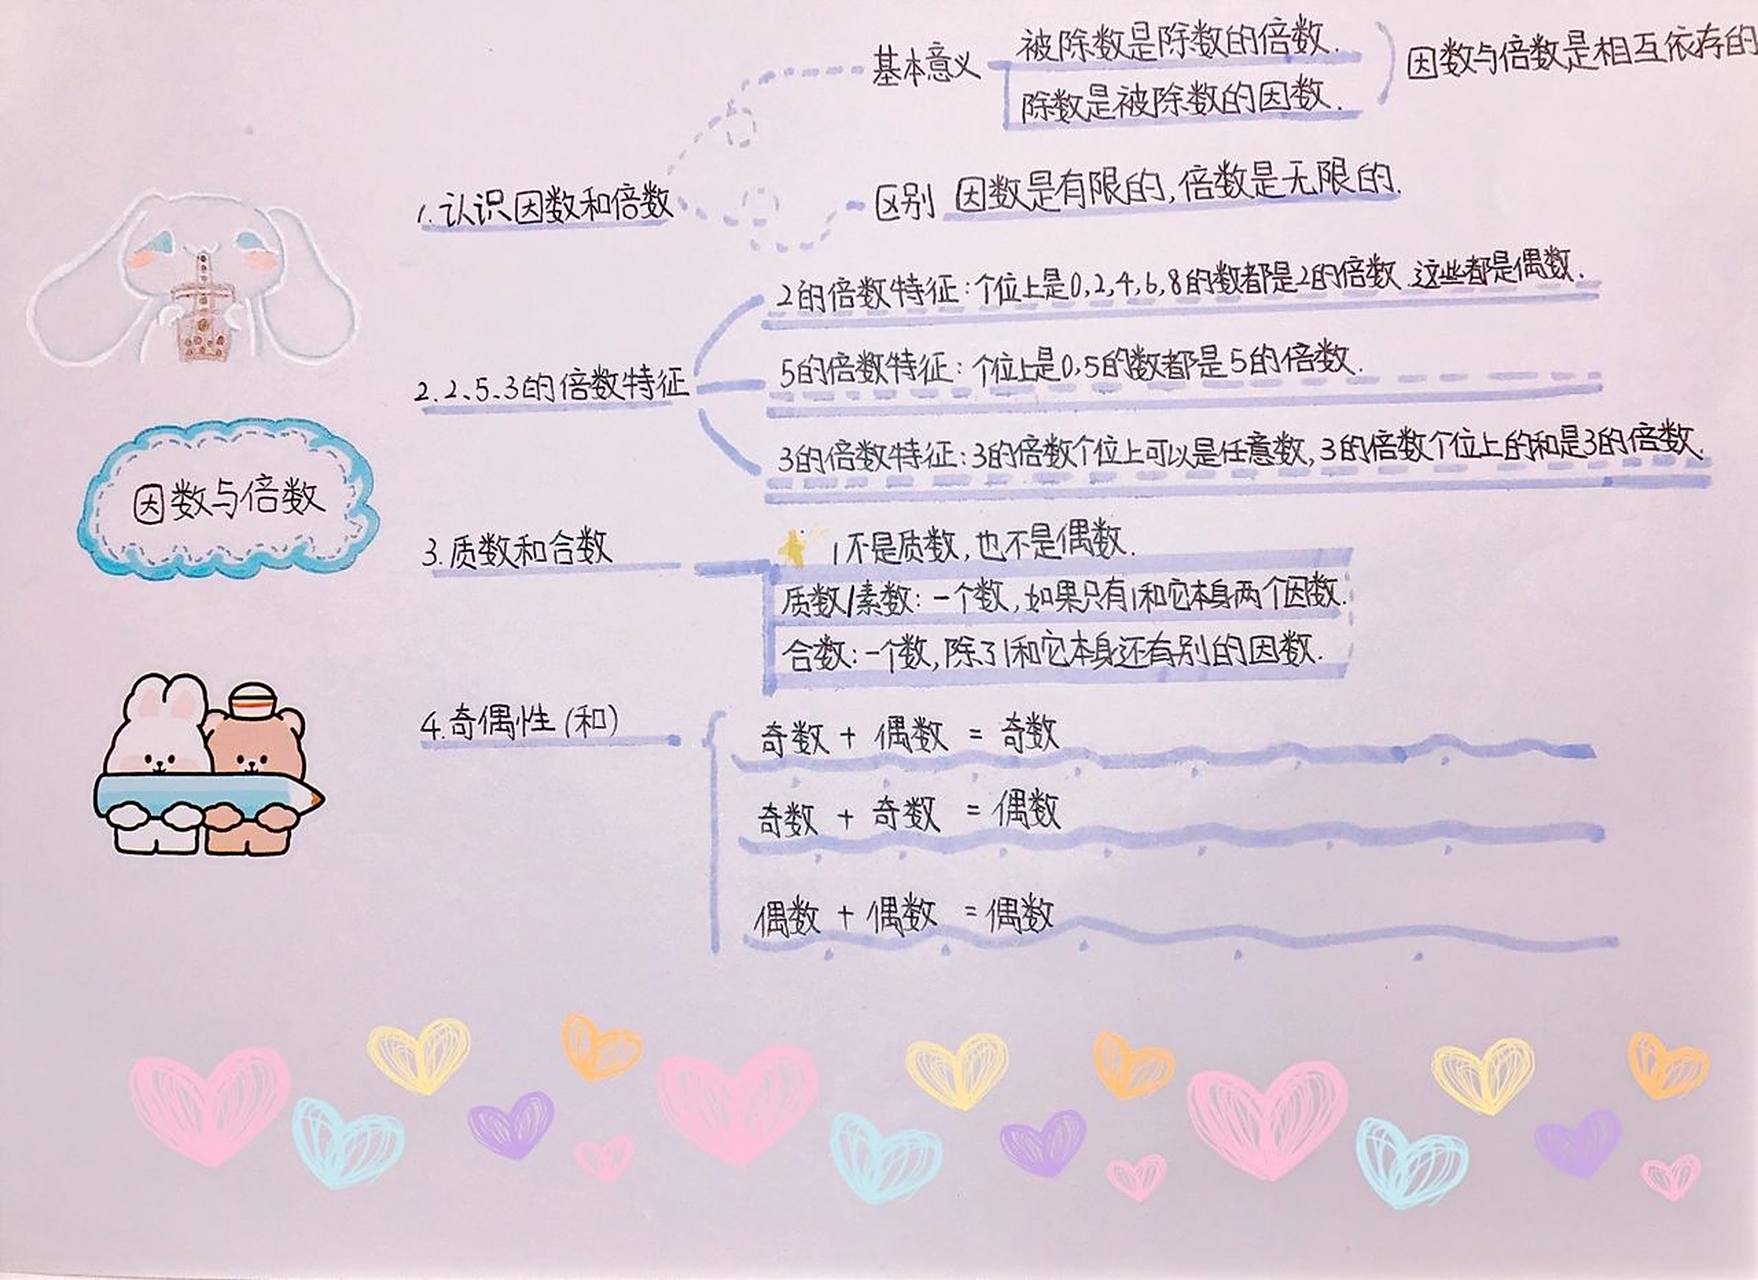 基本意义
被除数是除数的倍数.
除数是被除数的因数.
因数与倍数是相互依存的
1.认识因数和倍数
区别 因数是有限的,倍数是无限的.
2的倍数特征:个位上是0,2,4,6,8的数都是2的倍数.这些都是偶数.
2.2、5、3的倍数特征
5的倍数特征:个位上是0,5的数都是5的倍数.
3的倍数特征:3的倍数个位上可以是任意数,3的倍数个位上的和是3的倍数.
因数与倍数
3.质数和合数
1不是质数,也不是偶数.
质数/素数:一个数,如果只有1和它本身两个因数.
合数:一个数,除了1和它本身还有别的因数.
4.奇偶性(和)
奇数 + 偶数 = 奇数
奇数 + 奇数 = 偶数
偶数 + 偶数 = 偶数